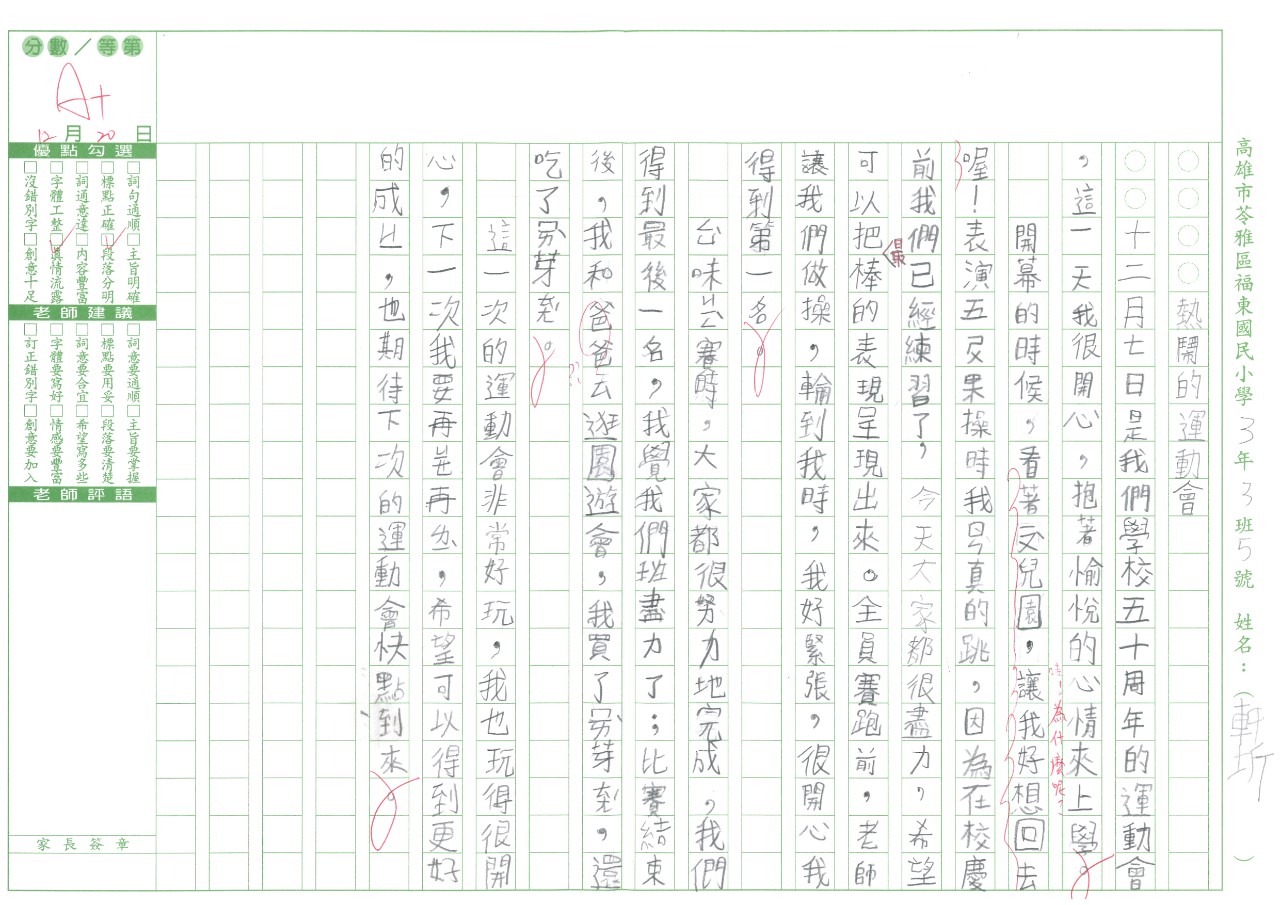 高雄市苓雅區福東國民小學3年3班5號 姓名：（軒圻）
○○○○熱鬧的運動會
○○十二月七日是我們學校五十周年的運動會
，這一天我很開心，抱著愉悅的心情來上學。
哇！為什麼呢？
開幕的時候，看著交兒園，讓我好想回去
喔！表演五反果操時我真的跳，因為在校慶
前我們已經練習了，今天大家都很盡力，希望
可以把最棒的表現呈現出來。全員賽跑前，老師
讓我們做操，輪到我時，我好緊張，很開心我
得到第一名。
台味賽時，大家都很努力地完成，我們
得到最後一名，我覺我們班盡力了；比賽結束
後，我和爸爸去逛園遊會，我買了芽，還
吃了芽。
這一次的運動會非常好玩，我也玩得很開
心，下一次我要再再，希望可以得到更好
的成ㄐㄧ，也期待下次的運動會快點到來。
分數／等第
A+
12月20日
優點勾選
□詞句通順□主旨明確
□標點正確□段落分明
□詞通意達□內容豐富
□字體工整□真情流露
□沒錯別字□創意十足
老師建議
□詞意要通順□主旨要掌握
□標點要用妥□段落要清楚
□詞意要合宜□希望寫多些
□字體要寫好□情感要豐富
□訂正錯別字□創意要加入
老師評語
家長簽章